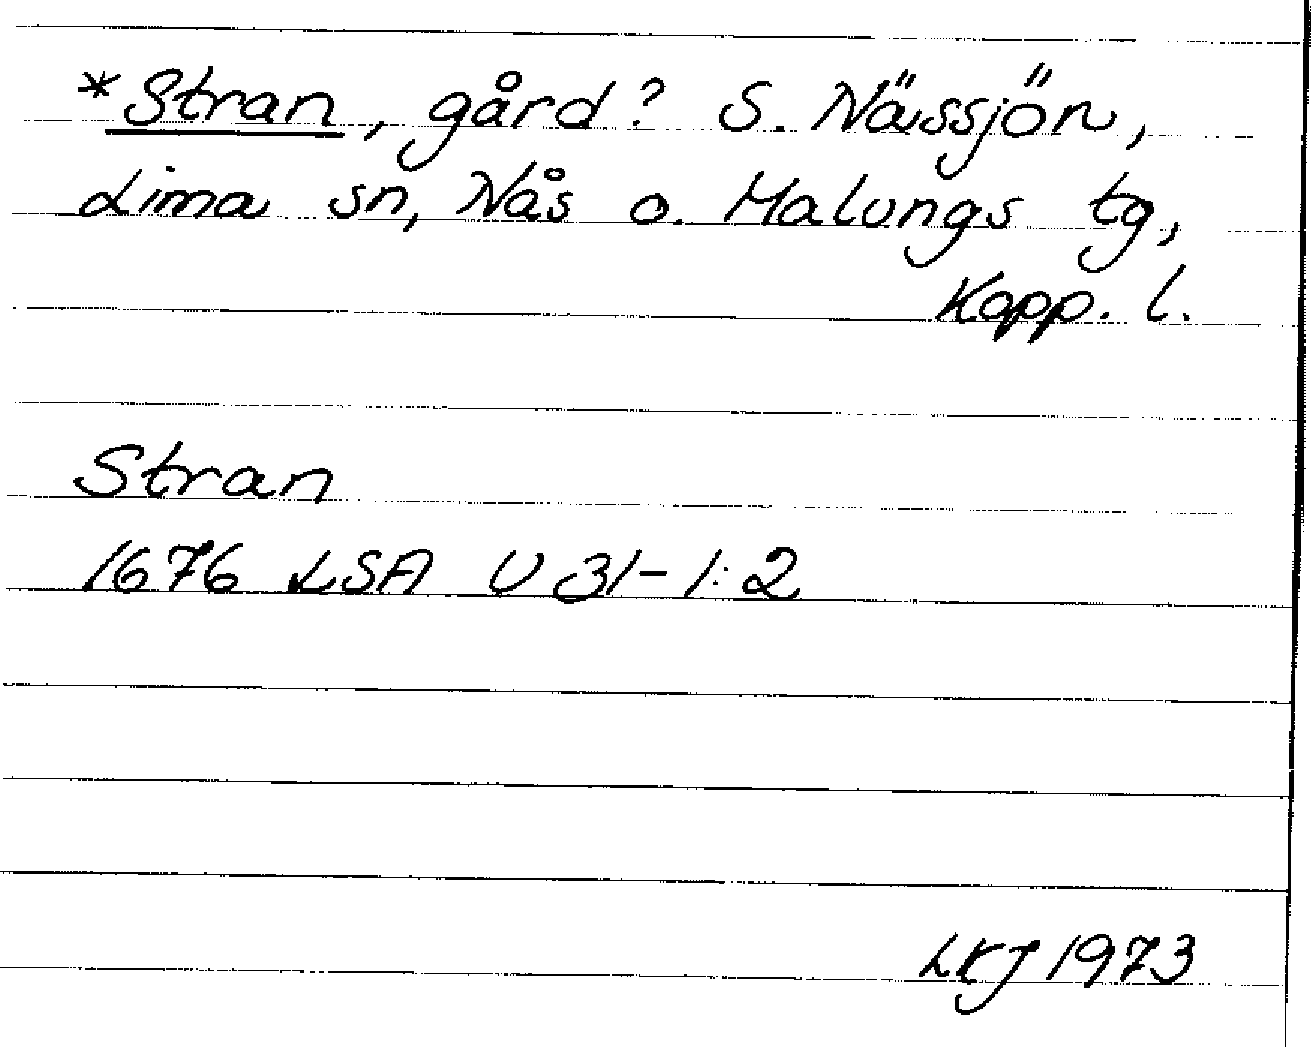 *Stran, gård? S. Nässjön,
Lima sn, Nås o. Malungs tg,
Kopp. l.
Stran
1676 LSA U 31-1:2
LKJ 1973